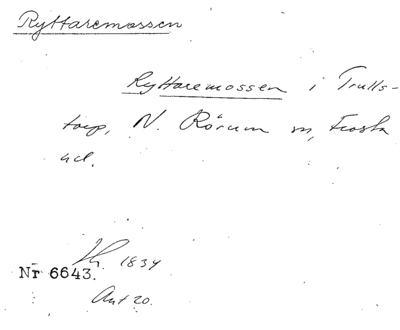 Ryttaremossen
Ryttaremossen i Trulls-
torp, N. Rörum sn, Frosta
hd.
1834
Nr 6643.
Akt 20.